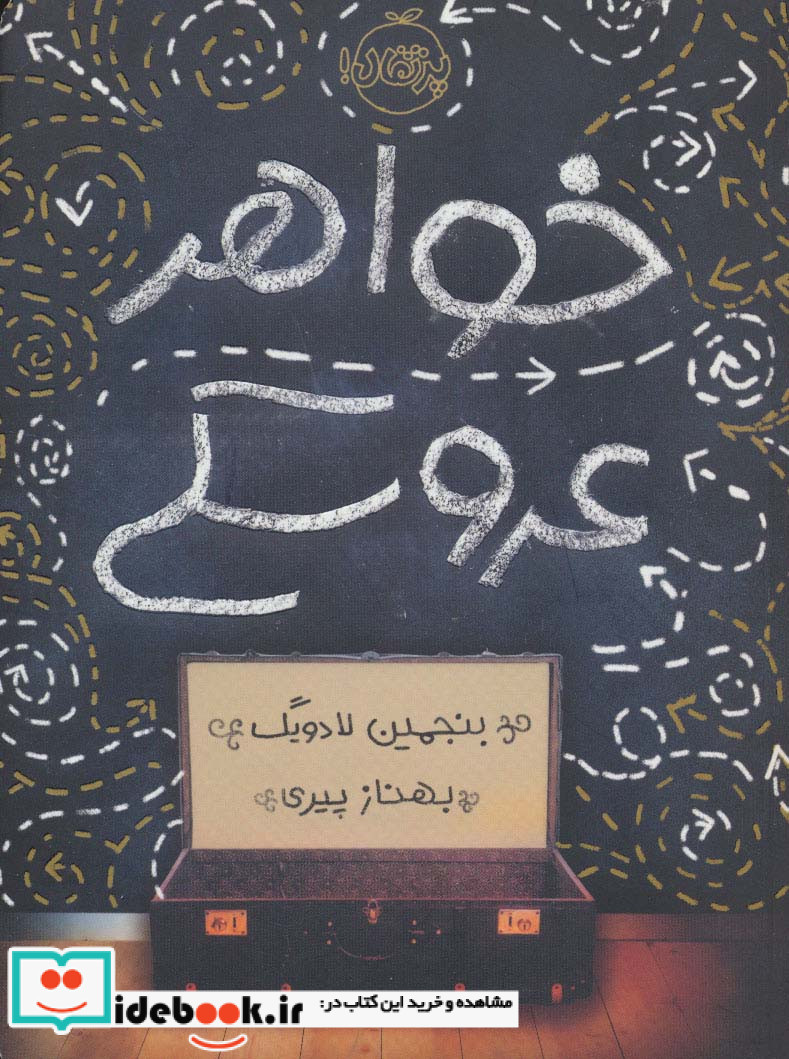 پرتقال!
خواهر
عروسکی
بنجمین لادویگ
بهناز پیری
مشاهده و خرید این کتاب در:
idebook.ir